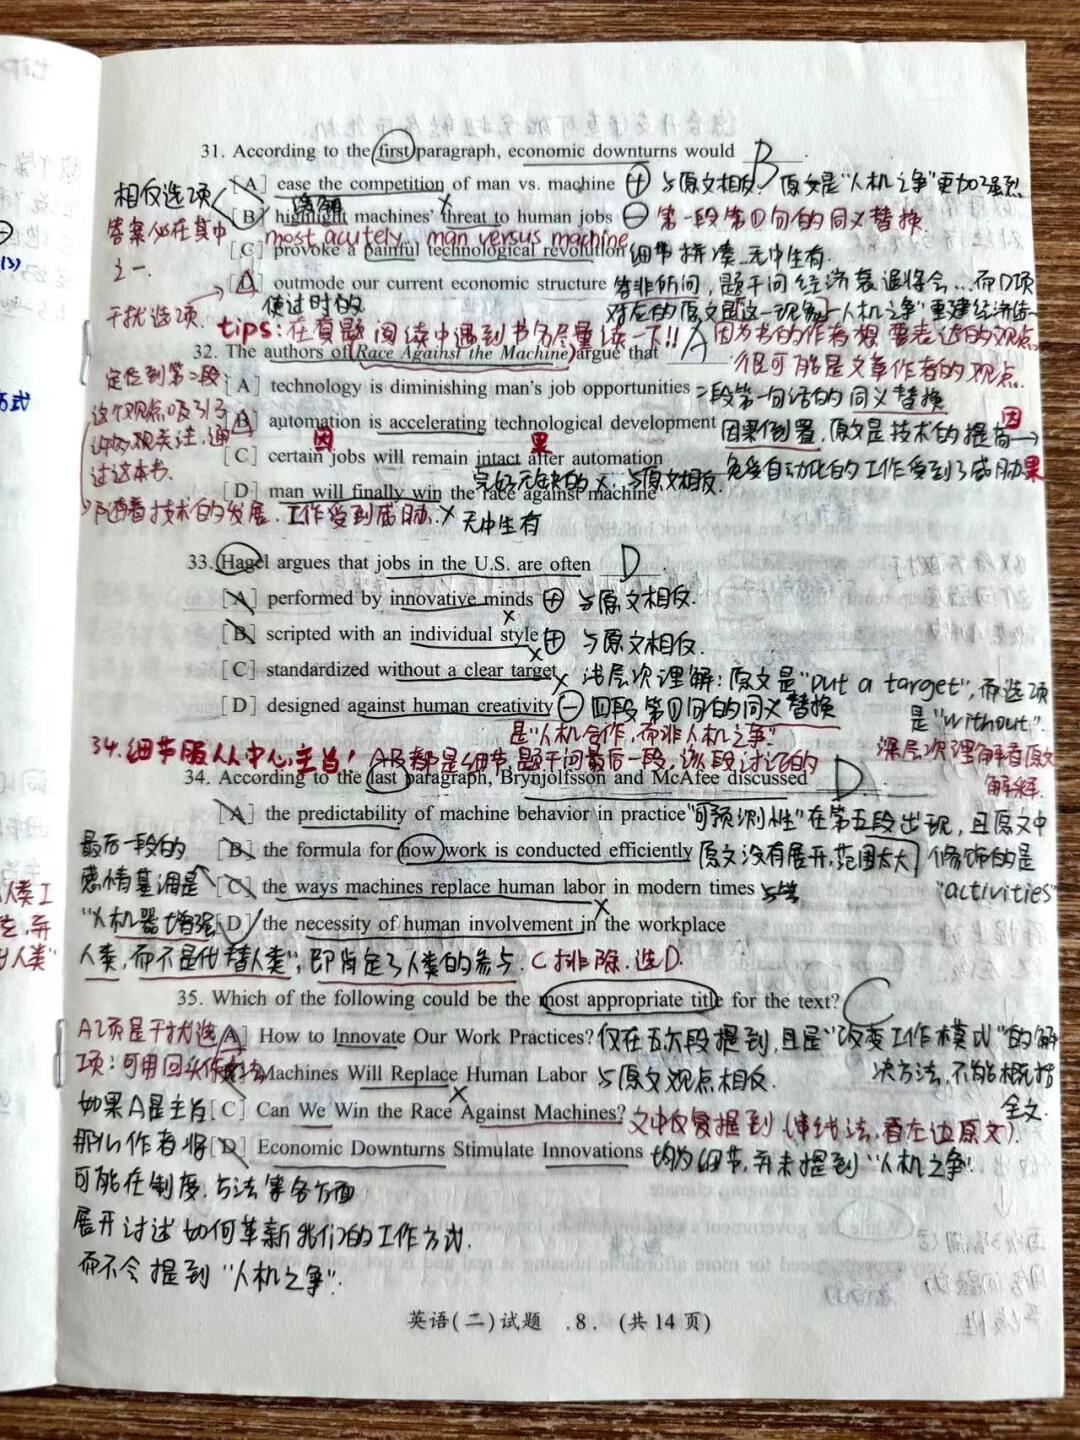 31. According to the first paragraph, economic downturns would B.
相反选项 [A] ease the competition of man vs. machine ⊕ 与原文相反 原文是"人机之争"更加强烈
答案必在其中之一. [B] highlight machines' threat to human jobs ⊖ 第一段第①句的同义替换
most acutely man versus machine
[C] provoke a painful technological revolution 细节拼凑 无中生有.
[D] outmode our current economic structure 答非所问,题干问经济衰退将会...而D项
使过时的
干扰选项.
tips:在真题阅读中遇到书名尽量读一下!! 因为书的作者想要表达的观点
很可能是文章作者的观点.
32. The authors of Race Against the Machine argue that A
定位到第二段 [A] technology is diminishing man's job opportunities 二段第一句话的同义替换
[B] automation is accelerating technological development 因果倒置,原文是技术的提高→
因 果 因
[C] certain jobs will remain intact after automation 免受自动化的工作受到了威胁 果
完好无缺的 × 与原文相反.
过这本书.
[D] man will finally win the race against machine
随着技术的发展.工作受到威胁.× 无中生有
33. Hagel argues that jobs in the U.S. are often D.
[A] performed by innovative minds ⊕ 与原文相反.
[B] scripted with an individual style ⊕ 与原文相反.
[C] standardized without a clear target × 浅层次理解:原文是"put a target",而选项
是"without".
[D] designed against human creativity ⊖ 四段第①句的同义替换
是"人机合作,而非人机之争"
深层次理解看原文解释.
34.细节服从中心主旨! AB都是细节,题干问最后一段,该段讨论的
34. According to the last paragraph, Brynjolfsson and McAfee discussed D.
[A] the predictability of machine behavior in practice "可预测性"在第五段出现,且原文中
修饰的是"activities"
[B] the formula for how work is conducted efficiently 原文没有展开,范围太大
最后一段的
感情基调是 [C] the ways machines replace human labor in modern times
"人机器增强 [D] the necessity of human involvement in the workplace
人类,而不是代替人类",即肯定了人类的参与.C排除.选D.
35. Which of the following could be the most appropriate title for the text? C
A项是干扰选项: [A] How to Innovate Our Work Practices? 仅在五六段提到,且是"改变工作模式"的解
决方法,不能概括全文.
[B] Machines Will Replace Human Labor 与原文观点相反.
如果A是主旨 [C] Can We Win the Race Against Machines? 文中反复提到(串线法,看左边原文).
那么作者将 [D] Economic Downturns Stimulate Innovations 均为细节,并未提到"人机之争"
可能在制度.方法等各方面
展开讨论如何革新我们的工作方式.
而不会提到"人机之争".
英语(二)试题 .8. (共14页)